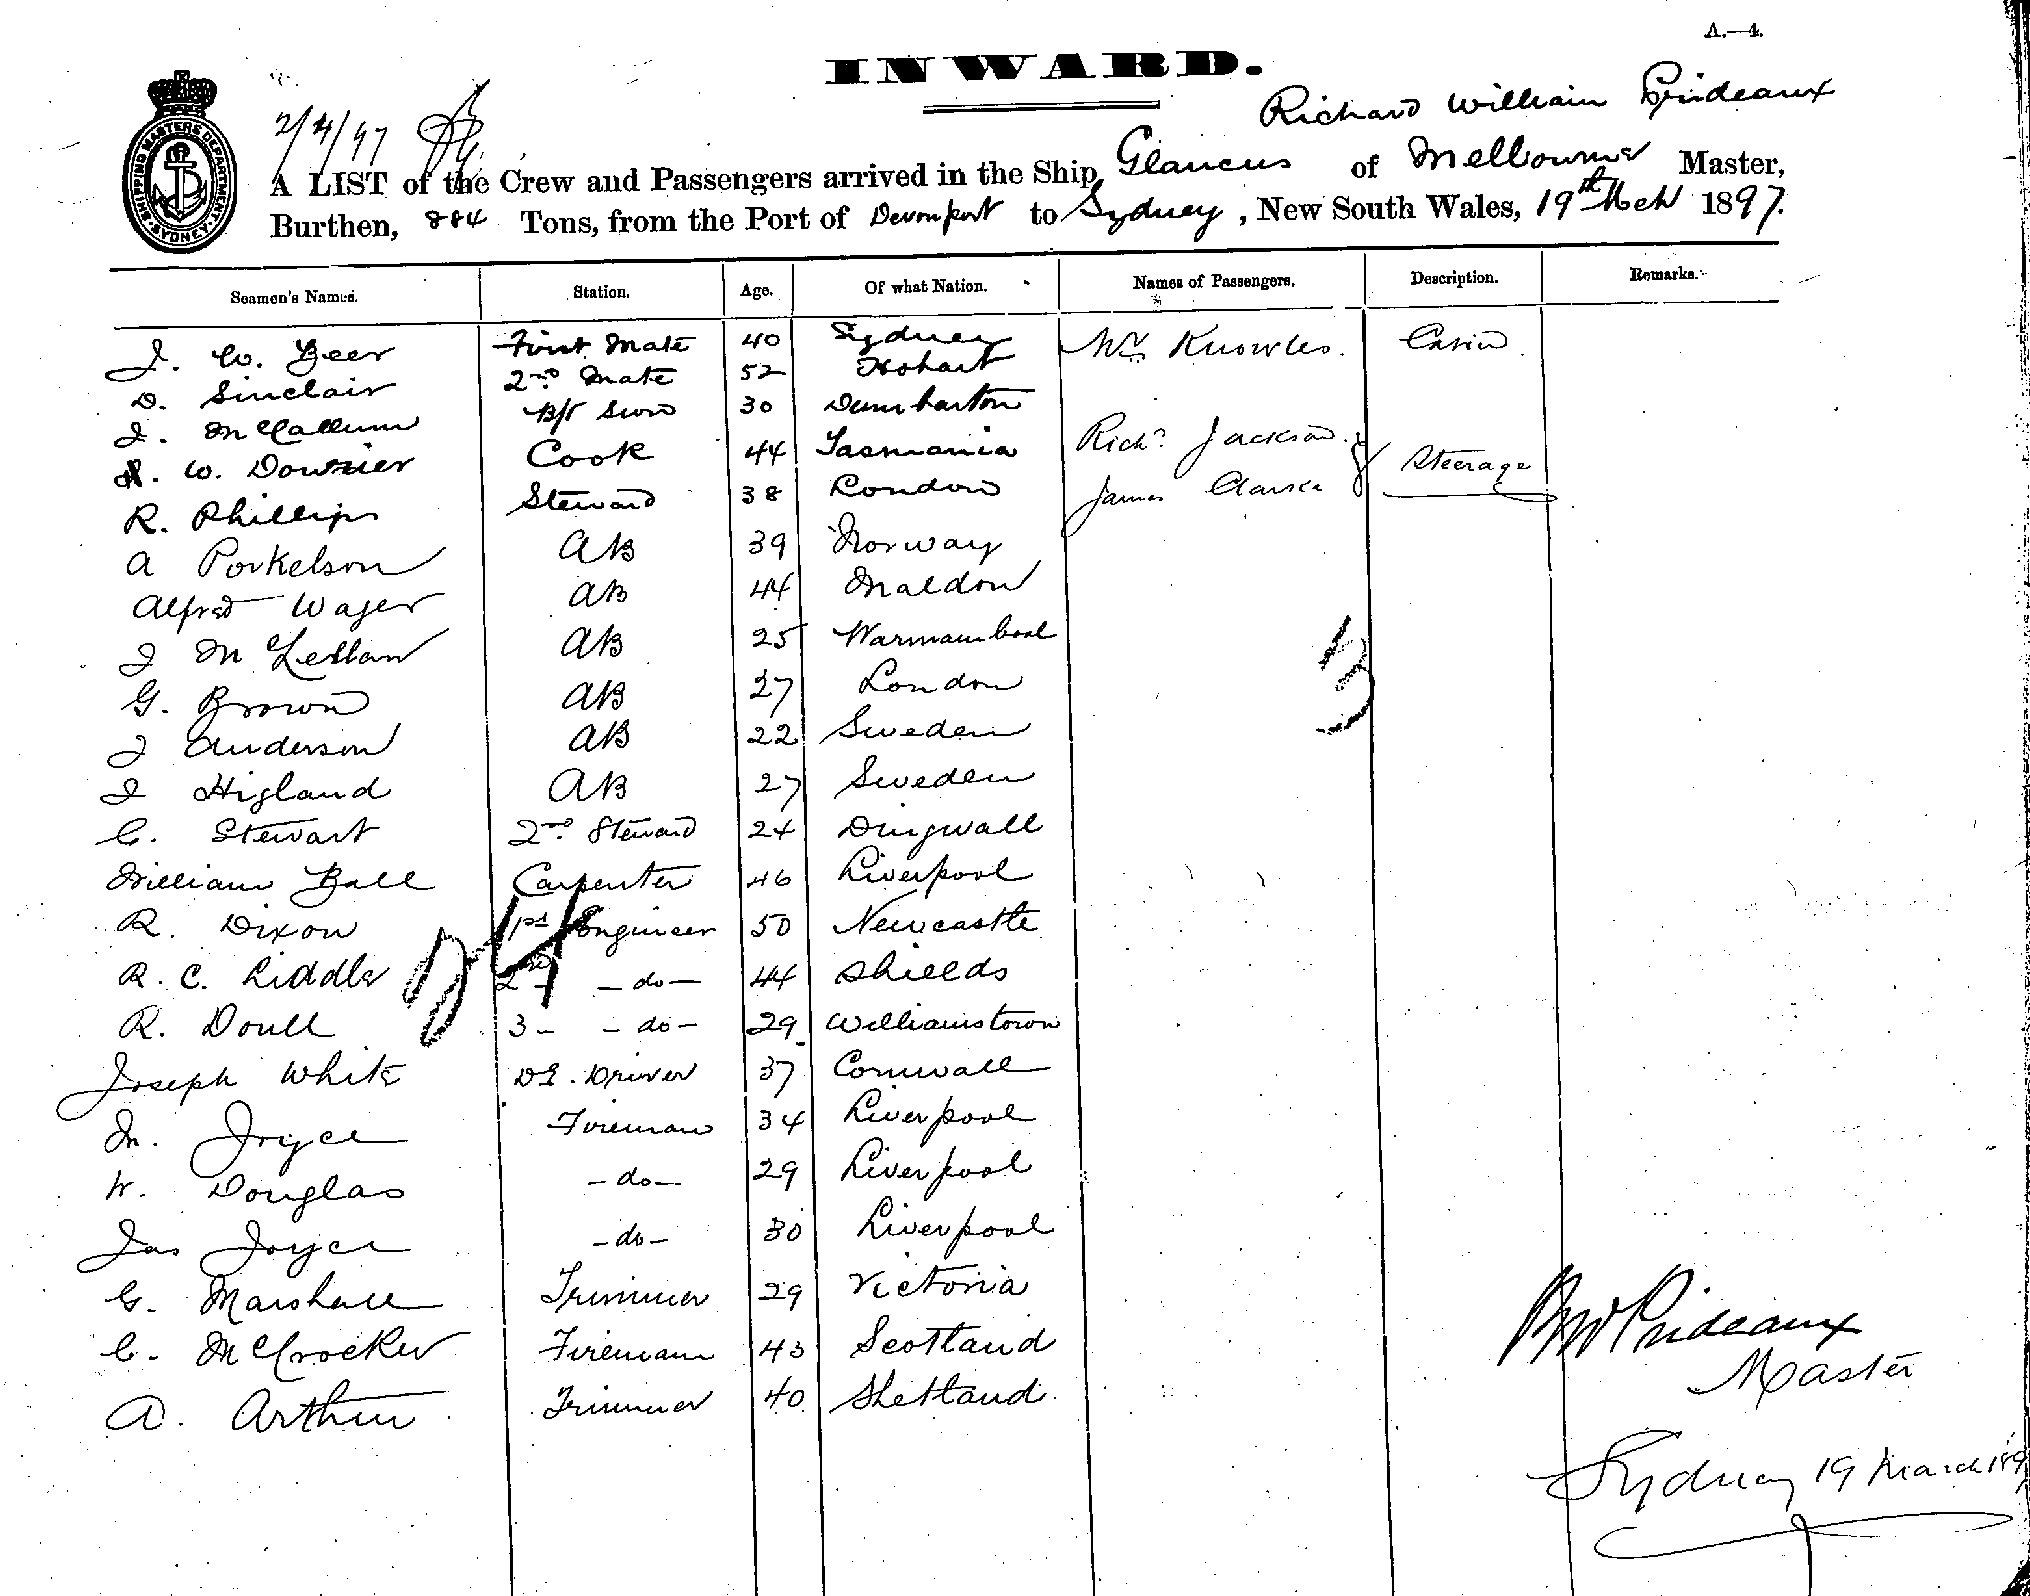 A.—4.
INWARD.
SHIPPING MASTERS DEPARTMENT SYDNEY
2/4/97
Richard William Prideaux
A LIST of the Crew and Passengers arrived in the Ship Glaucus of Melbourne Master,
Burthen, 884 Tons, from the Port of Devonport to Sydney, New South Wales, 19th Mch 1897.
Seamen's Names. Station. Age. Of what Nation. Names of Passengers. Description. Remarks.
J. W. Beer First Mate 40 Sydney Knowles. Cabin
D. Sinclair 2nd Mate 52 Hobart
J. McCallum 30 Dumbarton
W. Downier Cook 44 Tasmania Richd Jackson
R. Phillips Steward 38 London James Clarke Steerage
A Porkelson AB 39 Norway
Alfred Wager AB 44 Maldon
J McLellan AB 25 Warrnambool
G. Brown AB 27 London
3
J Anderson AB 22 Sweden
J Higland AB 27 Sweden
C. Stewart 2nd Steward 24 Dingwall
William Ball Carpenter 46 Liverpool
R. Dixon 1st Engineer 50 Newcastle
24
R. C. Riddle 2nd - do - 44 Shields
R. Doull 3 - - do - 29 Williamstown
Joseph White Driver 37 Cornwall
M. Joyce Fireman 34 Liverpool
W. Douglas - do - 29 Liverpool
Jas Joyce - do - 30 Liverpool
G. Marshall Trimmer 29 Victoria
C. McCrocker Fireman 43 Scotland
A. Arthur Trimmer 40 Shetland.
RW Prideaux
Master
Sydney 19 March 189